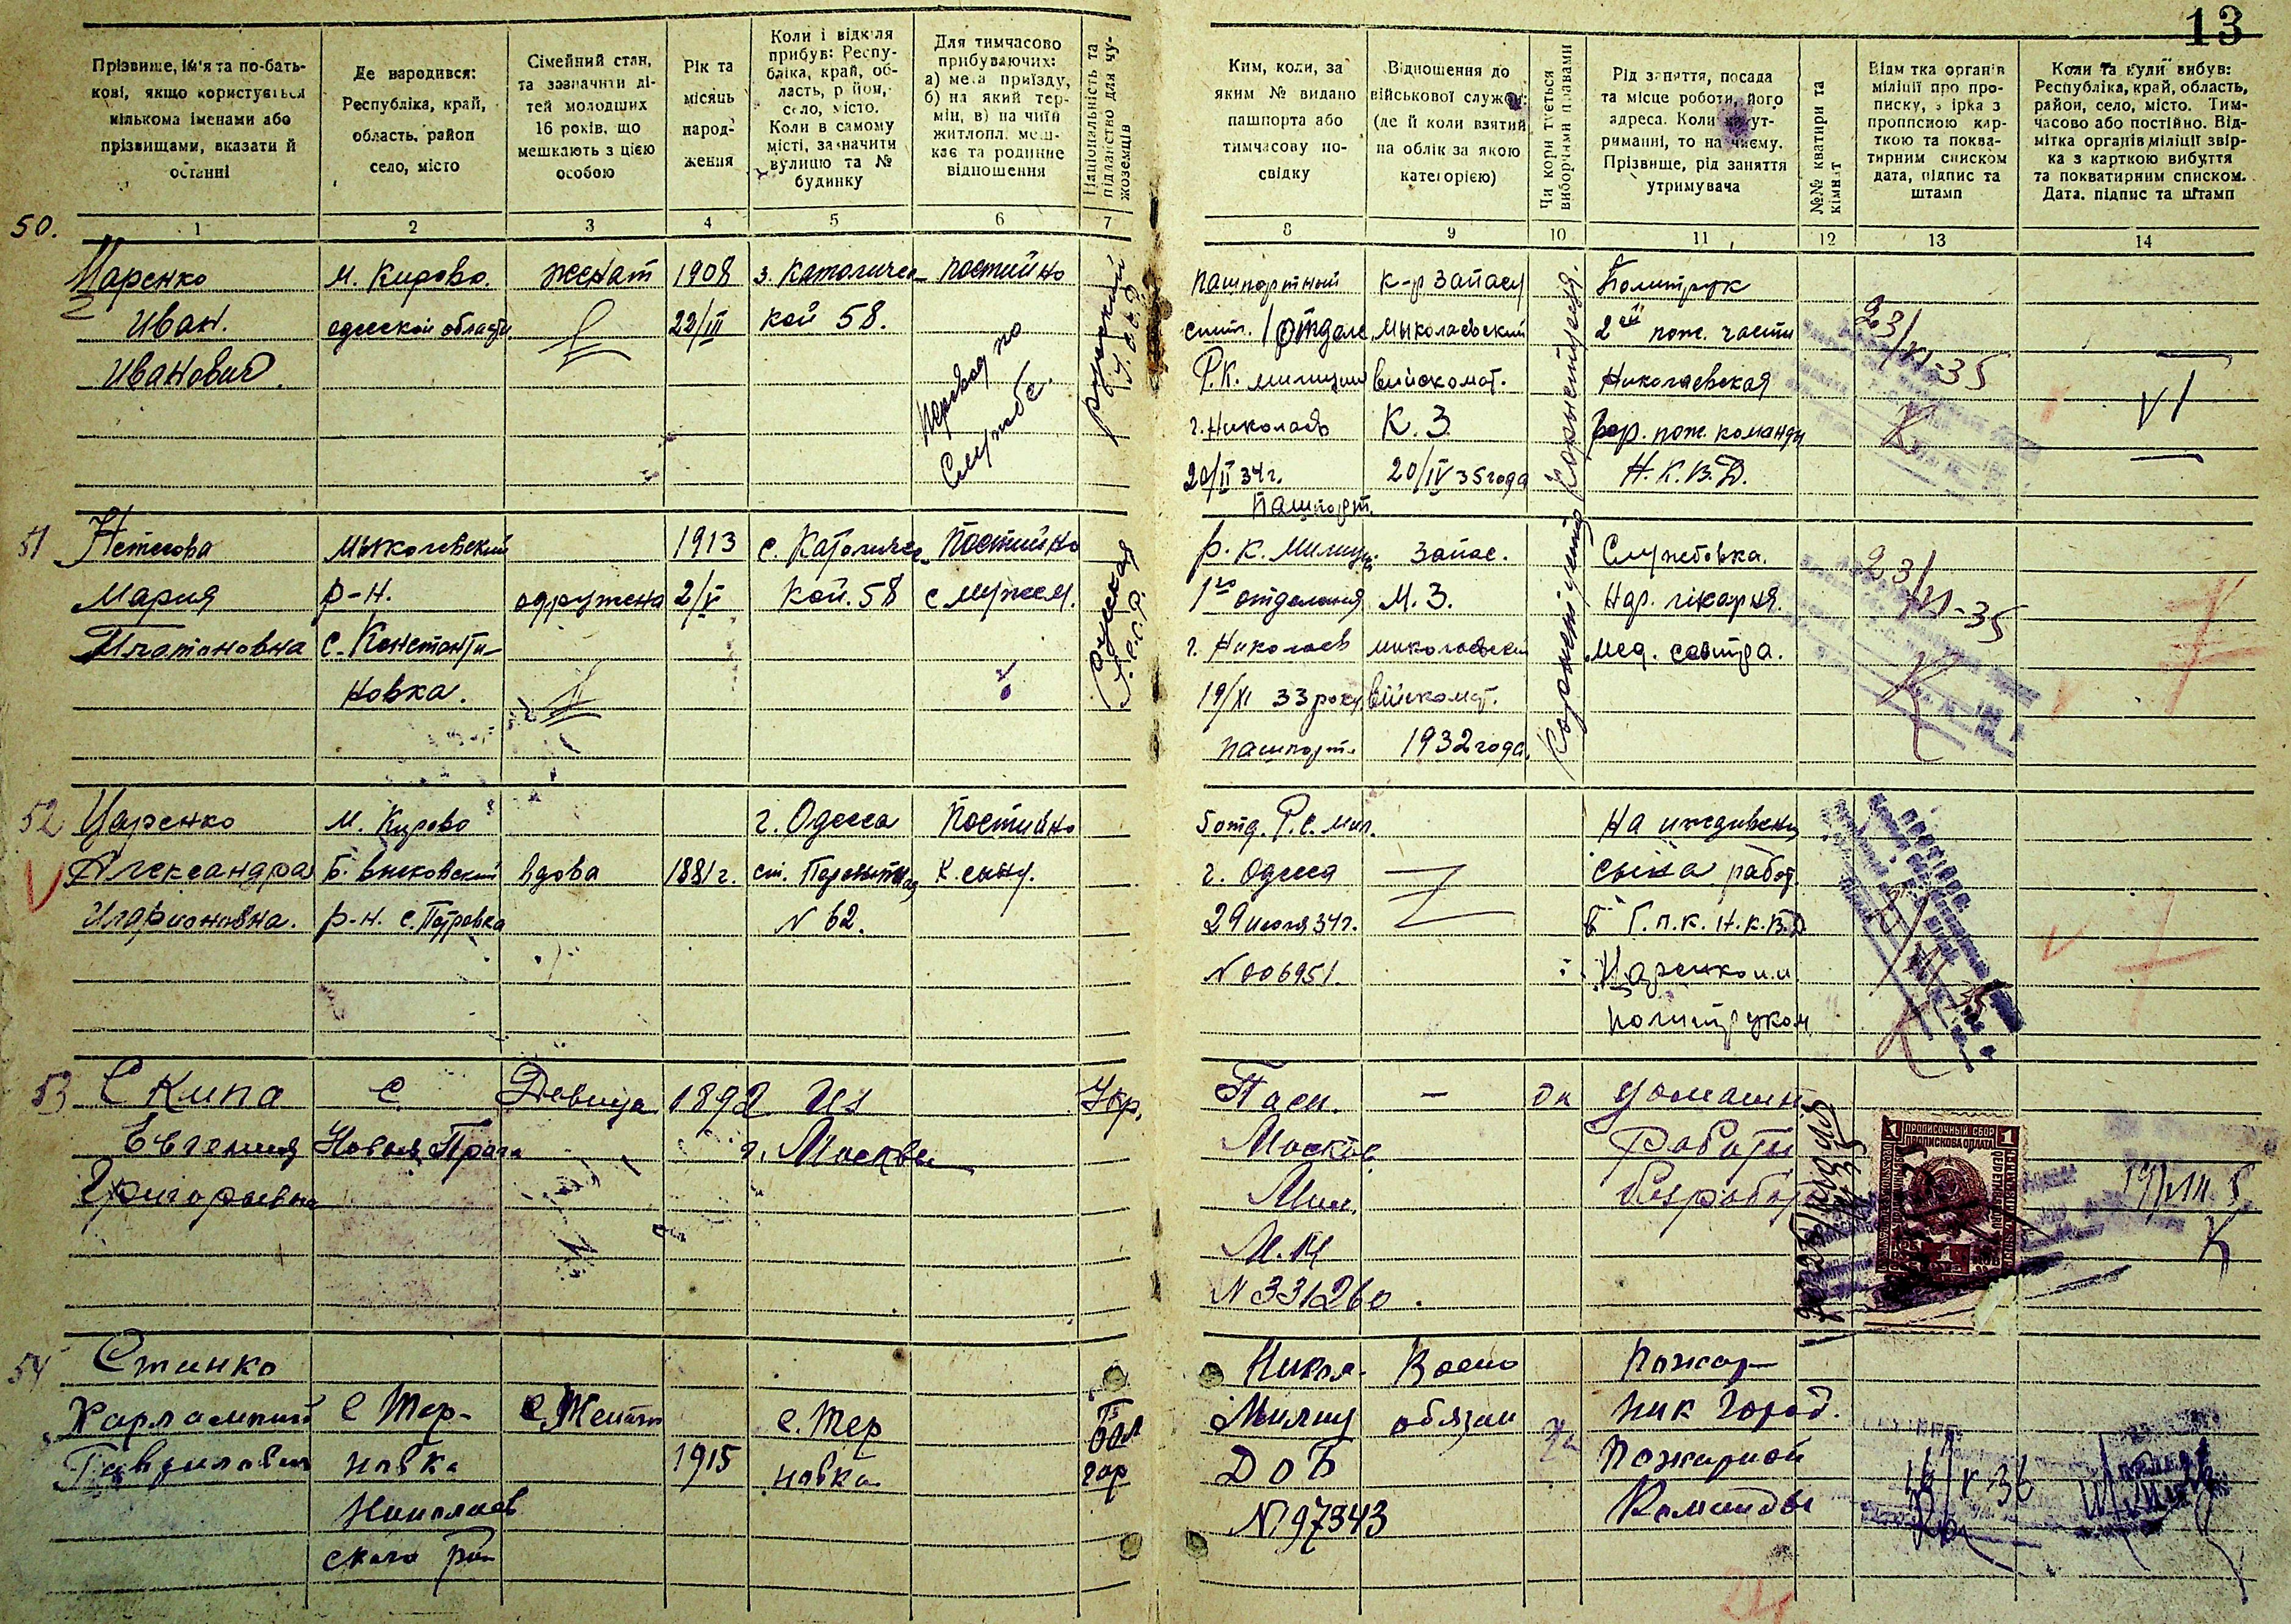 13
Прізвище, ім'я та по-бать-
кові, якщо користується
кількома іменами або
прізвищами, вказати й
останні
Де народився:
Республіка, край,
область, район
село, місто
Сімейний стан,
та зазначити ді-
тей молодших
16 років, що
мешкають з цією
особою
Рік та
місяць
народ-
ження
Коли і відкіля
прибув: Респу-
бліка, край, об-
ласть, район,
село, місто.
Коли в самому
місті, зазначити
вулицю та №
будинку
Для тимчасово
прибуваючих:
а) мета приїзду,
б) на який тер-
мін, в) на чиїй
житлопл. меш-
кає та родинне
відношення
Національність та
підданство для чу-
жоземців
Ким, коли, за
яким № видано
пашпорта або
тимчасову по-
свідку
Відношення до
військової служби
(де й коли взятий
на облік за якою
категорією)
Чи користується
виборчими правами
Рід заняття, посада
та місце роботи, його
адреса. Коли на ут-
риманні, то на чиєму.
Прізвище, рід заняття
утримувача
№№ квартири та
кімнат
Відмітка органів
міліції про про-
писку, звірка з
пропискою кар-
ткою та поква-
тирним списком
дата, підпис та
штамп
Коли та куди вибув:
Республіка, край, область,
район, село, місто. Тим-
часово або постійно. Від-
мітка органів міліції звір-
ка з карткою вибуття
та покватирним списком.
Дата, підпис та штамп
1 2 3 4 5 6 7 8 9 10 11 12 13 14
50.
Царенко
Иван
Иванович
м. Кирово.
одесской области
женат
1908
22/III
з. Католичес-
кой 58.
постийно
Перевод по
службе.
русский
У.С.С.Р.
пашпортный
стол. 1 отдел.
Р.К. милиции
г. Николаев
20/II 34 г.
пашпорт.
к-р запасу
Миколаевский
війскомат.
К.З.
20/IV 35 года
Користуется.
Политрук
2ой пож. части
Николаевская
гор. пож. команды
Н.К.В.Д.
23/VI-35
51
Мария
Платоновна
Миколаевский
р-н.
с. Константи-
новка.
одружена
1913
2/V
с. Католичес-
кой. 58
Постийно
с мужем.
Русская
У.С.С.Р.
Р.К. Милиции
1го отделения
г. Николаев
19/XI 33 року
пашпорт.
Запас.
М.З.
миколаевский
війскомат.
1932 года.
Користуется
Службовка.
Нар. лікарня.
мед. сестра.
23/VI-35
52
Царенко
Александра
Иларионовна.
м. Кирово
р-н. с. Петровка
вдова
1881 г.
г. Одесса
N 62.
Постийно
к сыну.
5 отд. Р.С. Мил.
г. Одесса
29 июля 34 г.
N 006951.
На иждивении
сына работ.
в Г.П.К. Н.К.В.Д.
Царенко И.И.
политруком
53
Скипа
Евгения
Григорьевна
с.
Новая Прага
Девица
1892
Из
г. Москвы
Укр.
Пасп.
Москов.
Мил.
N 331260.
–
да
домашн.
Работы
безработ
ПРОПИСОЧНЫЙ СБОР
ПРОПИСКОВА ОПЛАТА
1
54
Стинко
Харлампий
Гаврилович
с. Тер-
новка
Николаев
ского р-н
Женат
1915
с. Тер
новка
Бол
гар
Никол.
Милиц
N 97343
Воено
обязан
да
Пожар-
ник город.
Пожарной
Команды
16/V-36